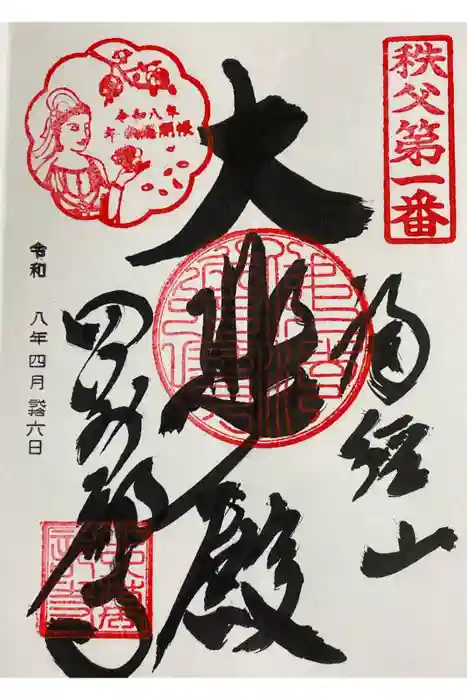 秩父第一番
誦經山
大悲殿
四万部寺
令和八年
午歳総開帳
令和 八年四月弐拾六日